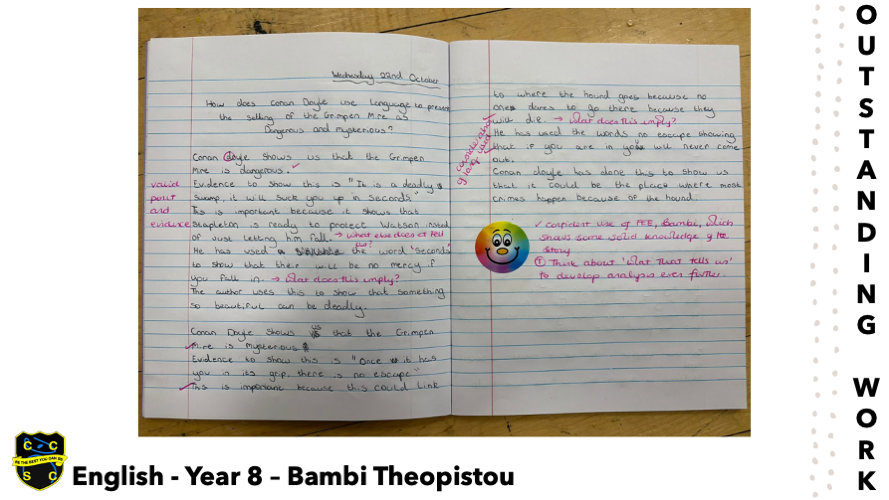 Wednesday 22nd October
How does Conan Doyle use language to present
the setting of the Grimpen Mire as
Dangerous and mysterious?
Conan doyle shows us that the Grimpen
Mire is dangerous.
Evidence to show this is "It is a deadly
Swamp, it will suck you up in seconds"
This is important because it shows that
Stapleton is ready to protect Watson insted
of Just letting him fall. → what else does it tell us?
He has used the word 'seconds'
to show that their will be no mercy if
you fall in. → What does this imply?
The author uses this to show that something
so beautiful can be deadly.
valid
point
and
evidence
Conan Doyle Shows us that the Grimpen
Mire is Mysterious
Evidence to show this is "Once it has
you in its grip, there is no escape"
This is important because this could Link
to where the hound goes because no
ones dares to go there because they
will die. → What does this imply?
He has used the words no escape showing
that if you are in you will never come
out.
Conan doyle has done this to show us
that it could be the place where most
crimes happen because of the hound.
consideration
of lang used
✓ Confident use of PEE, Bambi, which
shows some solid knowledge of the
story
T Think about 'what that tells us'
to develop analysis even further.
OUTSTANDING WORK
C C
BE THE BEST YOU CAN BE
S C
English - Year 8 – Bambi Theopistou